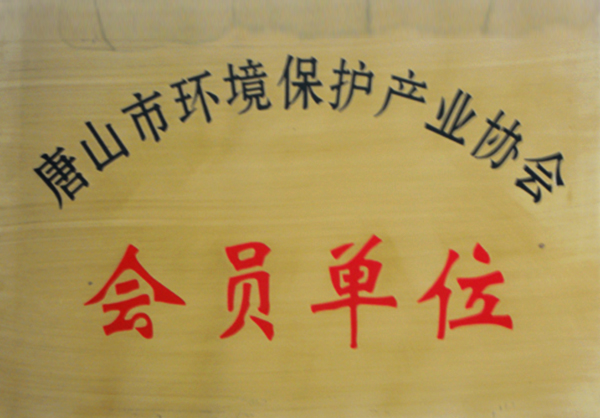 唐山市环境保护产业协会
会员单位